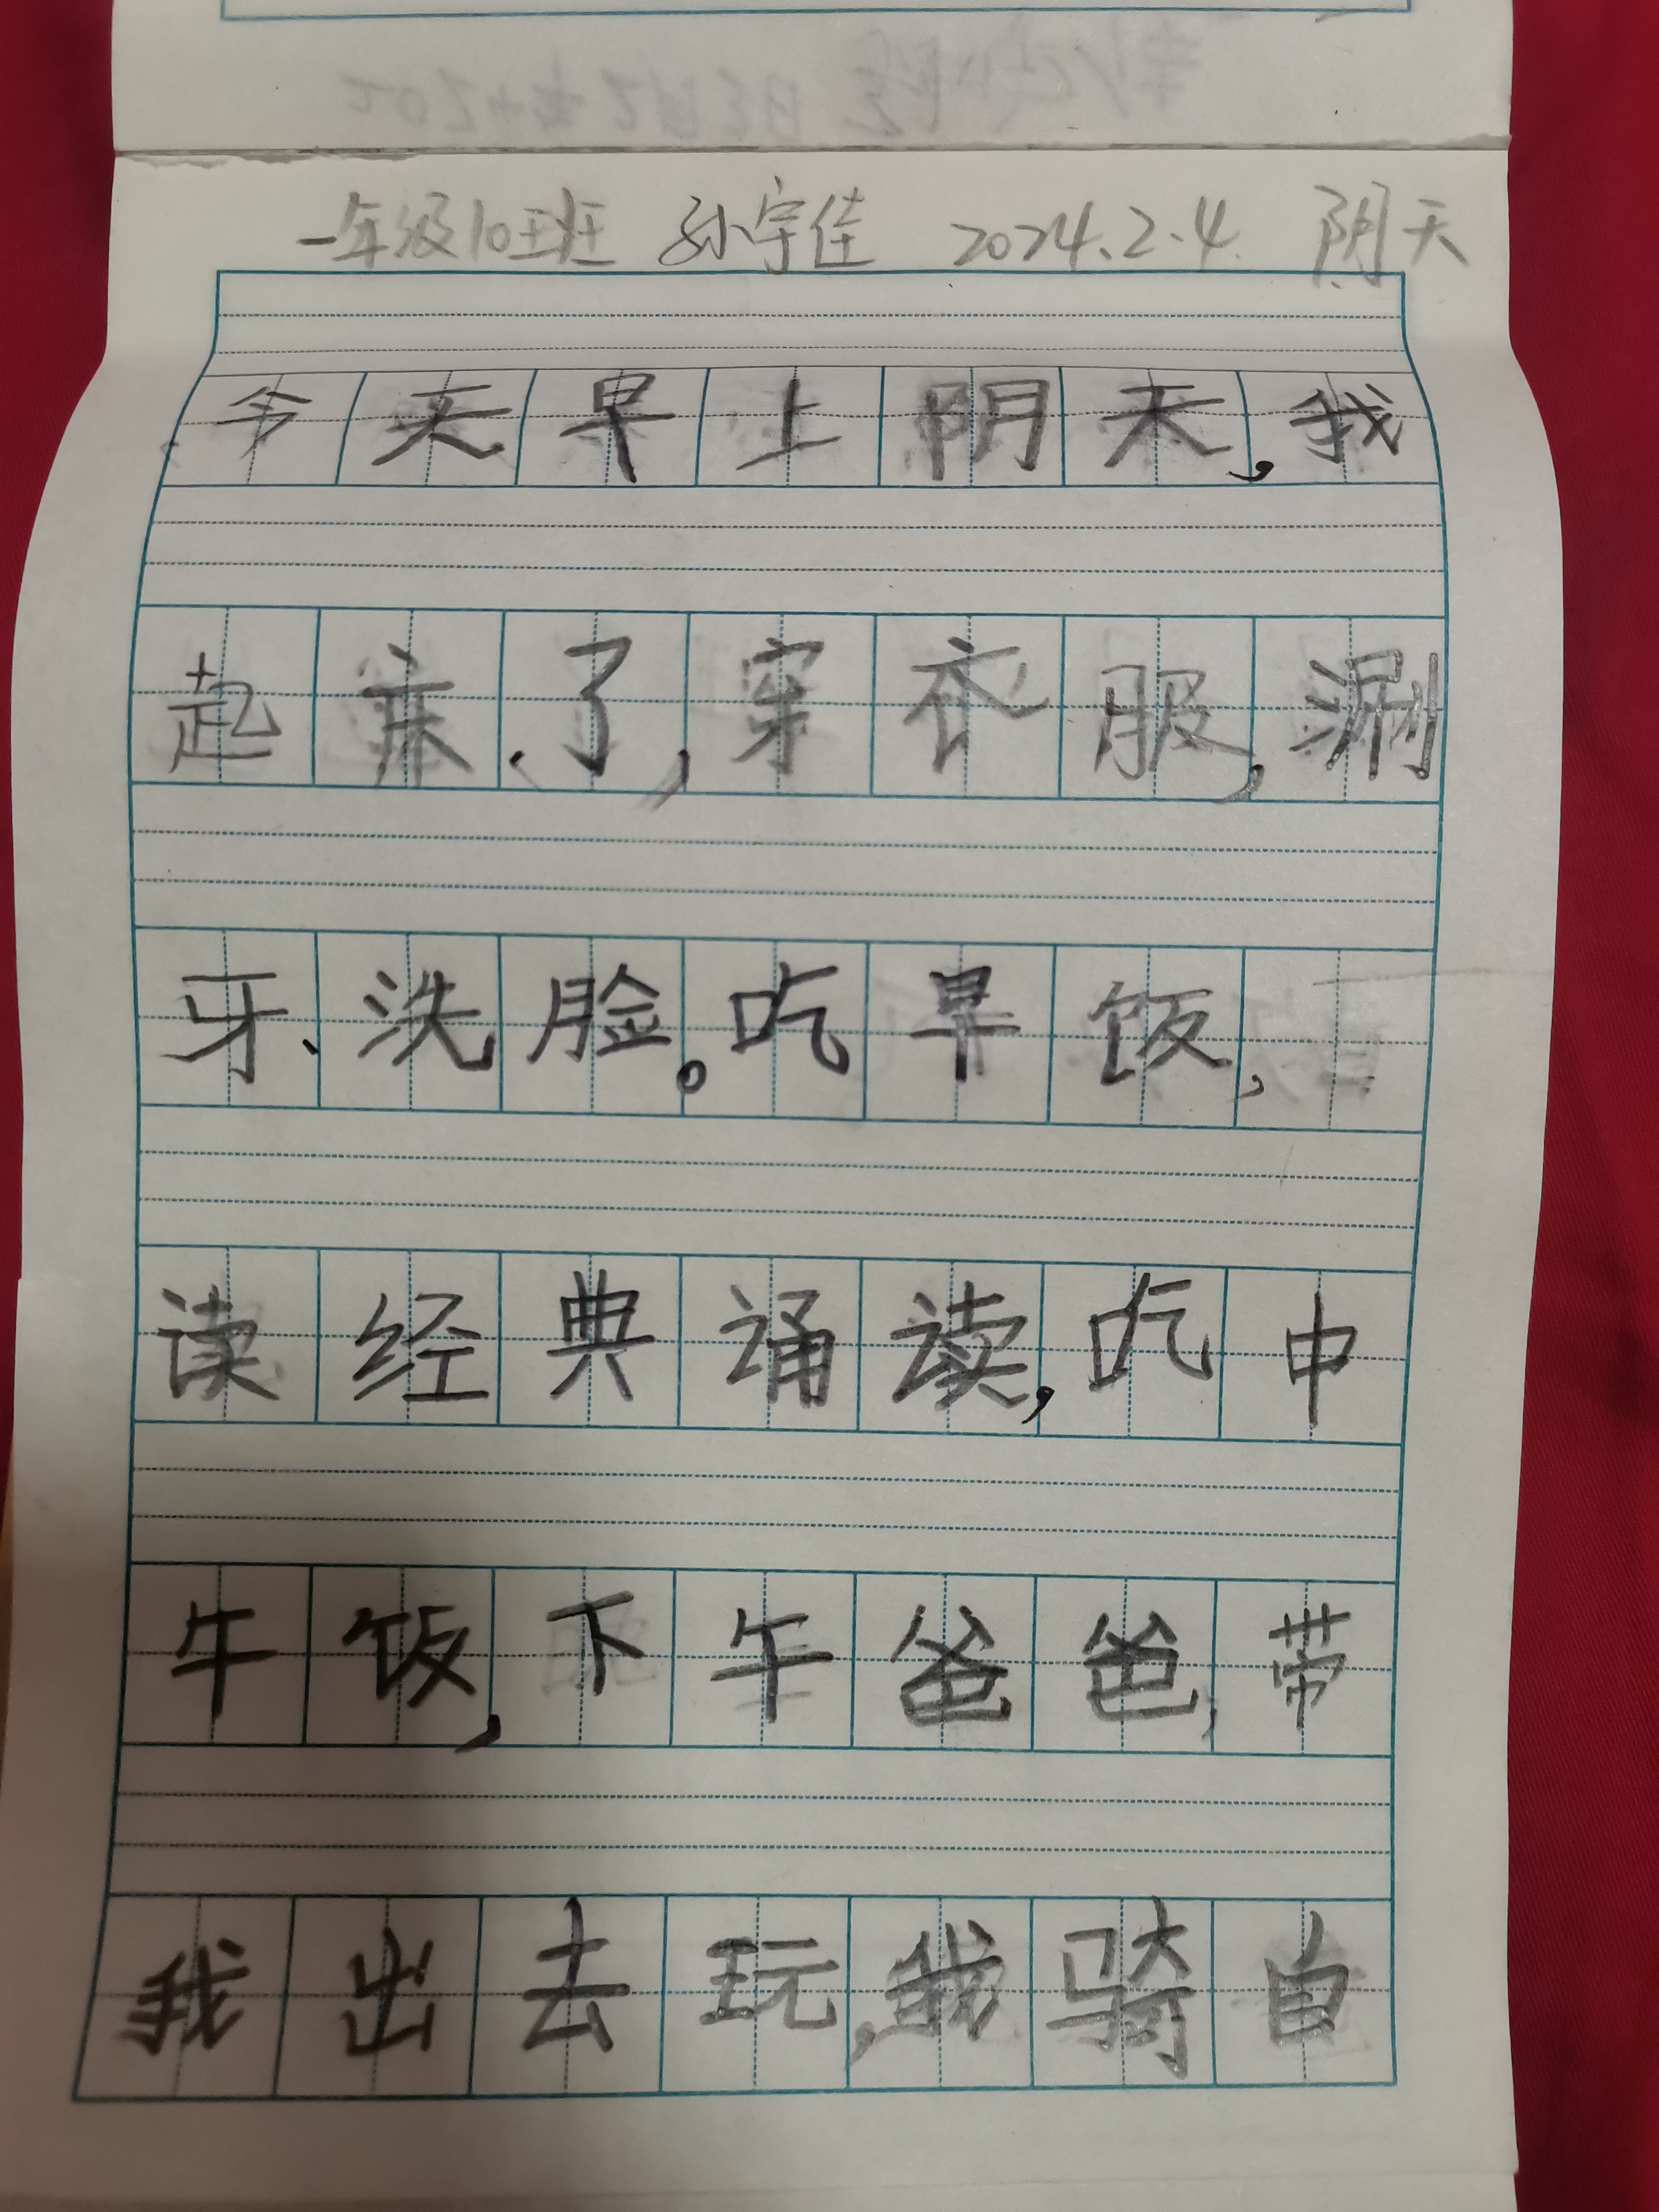 一年级10班 孙宇佳 2024.2.4 阴天
今天早上阴天,我
起床了,穿衣服,涮
牙、洗脸。吃早饭,
读经典诵读,吃中
午饭,下午爸爸,带
我出去玩,我骑自